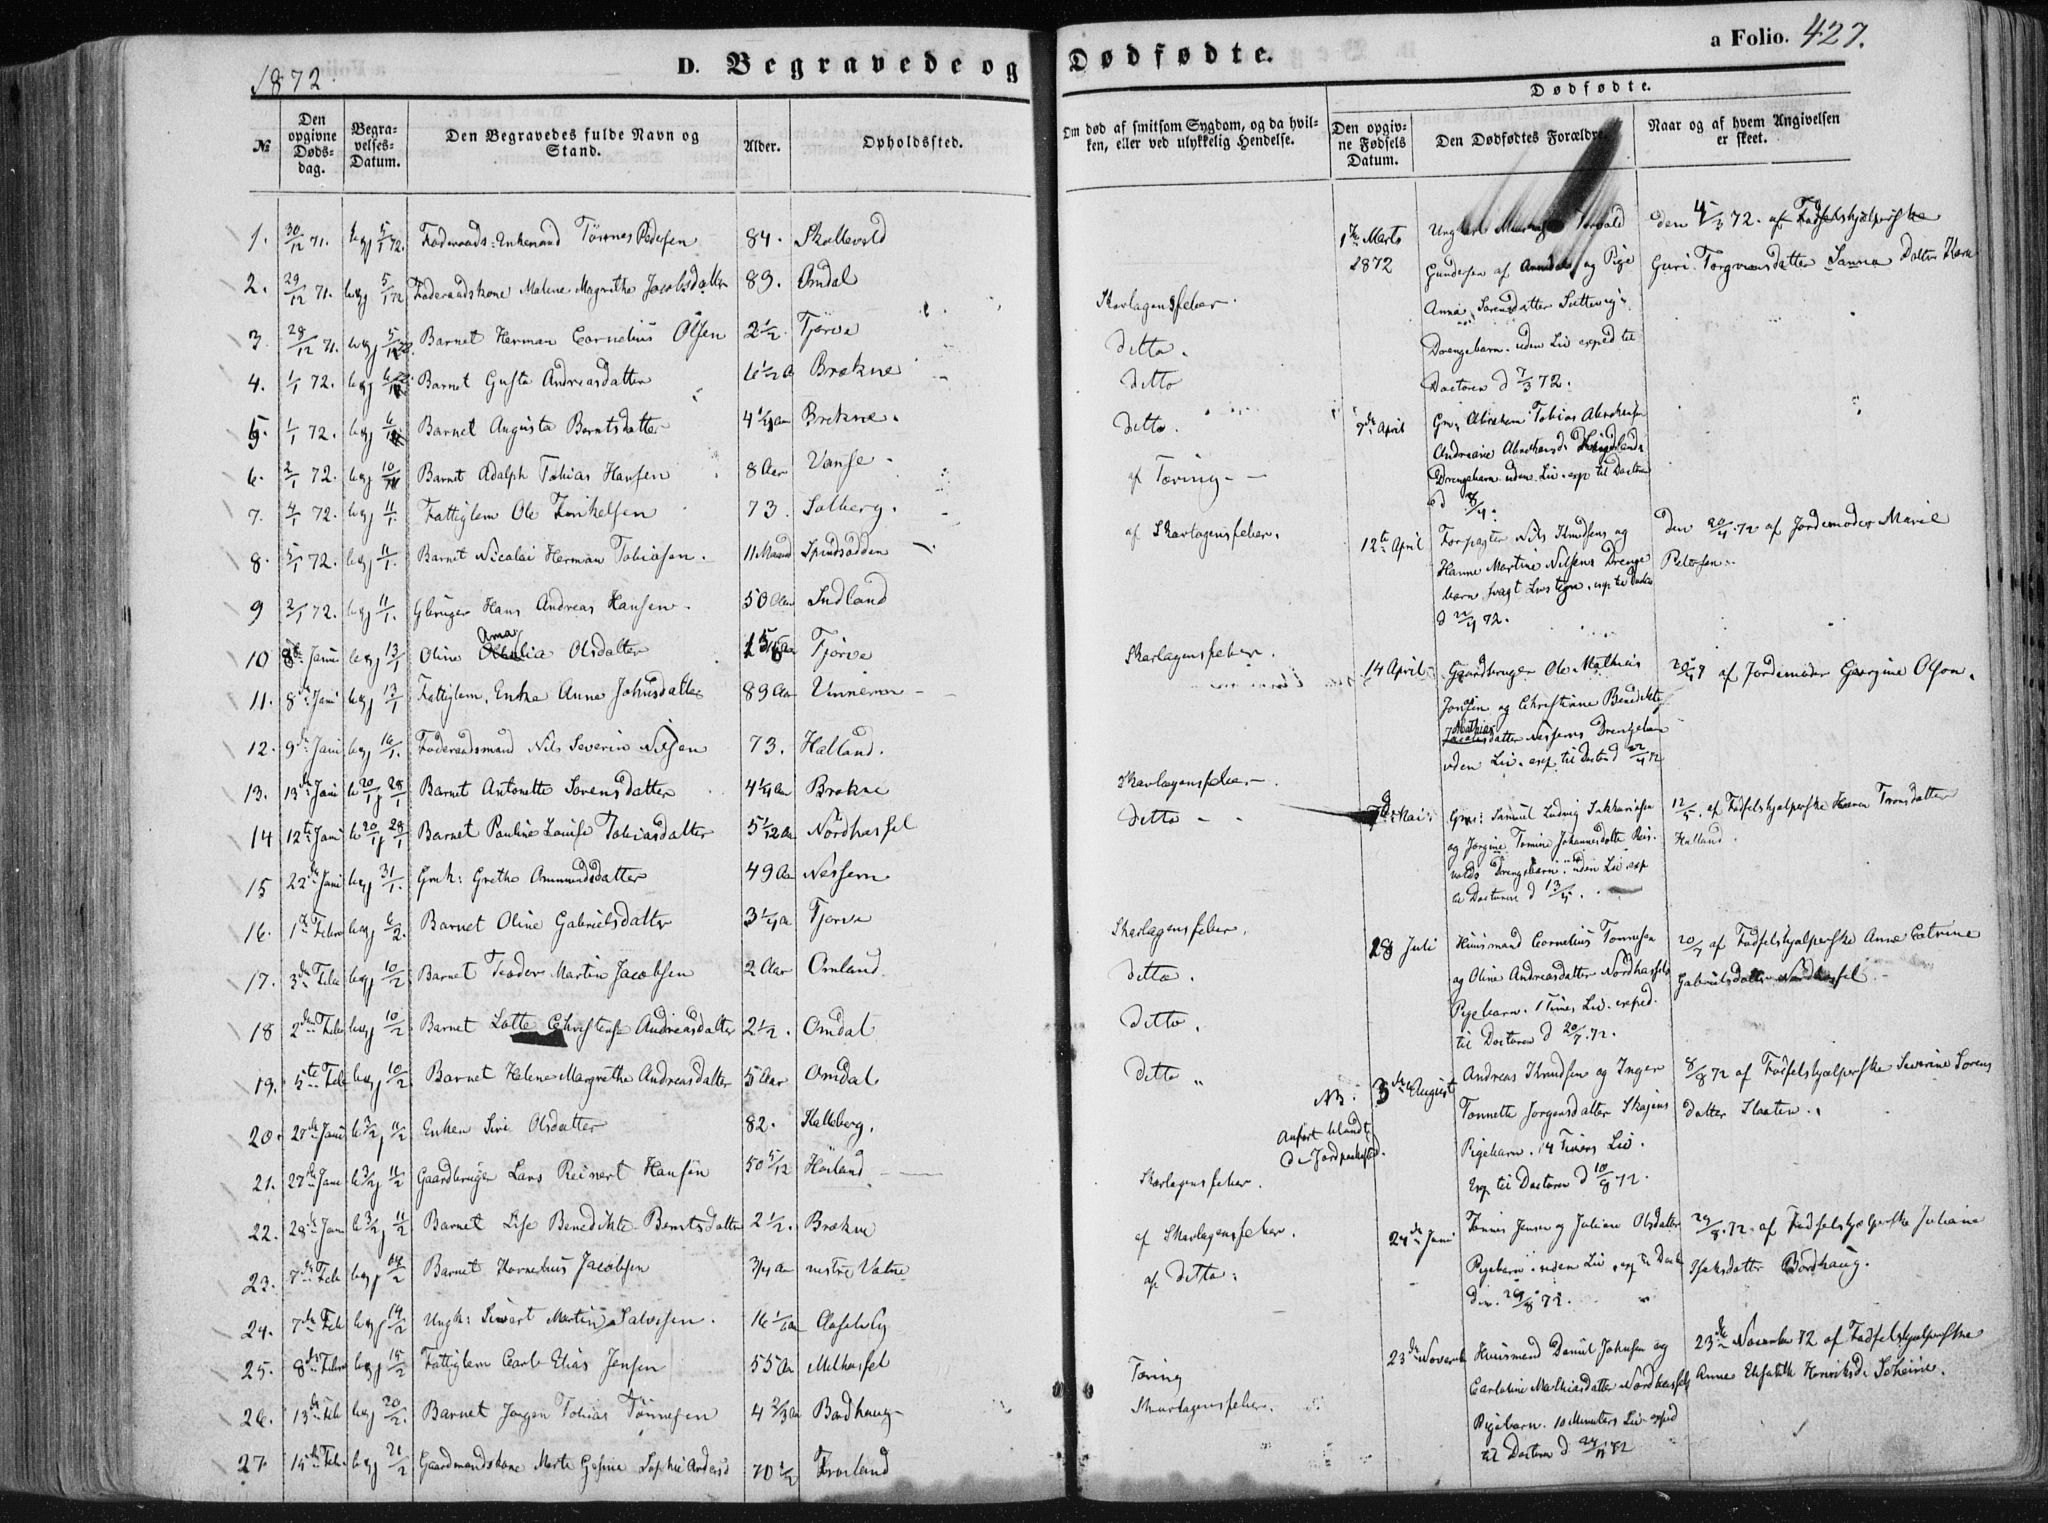 1872.
D. Begravede og Dødfødte.
a Folio. 427.
№
Den opgivne Døds-dag.
Begra-velses-Datum.
Den Begravedes fulde Navn og Stand.
Alder.
Opholdssted.
Om død af smitsom Sygdom, og da hvil-ken, eller ved ulykkelig Hendelse.
Dødfødte.
Den opgiv-ne Fødsels Datum.
Den Dødfødtes Forældre.
Naar og af hvem Angivelsen er skeet.
1. 30/12 71. beg 5/1 72. Føderaads: Enkemand Tønnes Pedersen 84. Skollevold
2. 29/12 71. beg 5/1 72 Føderaadskone Malene Magrethe Jacobsdatter 89. Omdal
3. 28/12 71. beg 5/1 72. Barnet Herman Cornelius Olsen 2 1/2. Tjørve Skarlagensfeber.
4. 1/1 72. beg 6/1 Barnet Gusta Andreasdatter 6 1/2 A Brekne ditto.
5. 1/1 72. beg 6/1 Barnet Augusta Berntsdatter 4 1/4 Aar Brekne. ditto
6. 2/1 72. beg 10/1 Barnet Adolph Tobias Hansen 8 Aar Vanse ditto.
7. 4/1 72. beg 11/1. Fattiglem Ole Torkelsen 73. Solberg. af Tæring
8. 5/1 72. beg 11/1. Barnet Nicolai Herman Tobiasen. 11 Maand Spindsodden af Skarlagensfeber.
9 2/1 72. beg 11/1. Gbruger Hans Andreas Hansen. 50 Aar Indland
10 8de Janu beg 13/1 Oline Amalia Olsdatter Tjørve Skarlagensfeber.
11. 8de Janu beg 13/1 Fattiglem, Enke Anne Johnsdatter 89 Aar Unneren
12. 9de Janu beg 16/1. Føderaadsmand Nils Severin Nilsen 73. Halland.
13. 13de Janu b 20/1 j 28/1 Barnet Antonette Sørensdatter 4 1/4 Aar Brekne Skarlagensfeber.
14 12te Janu b 20/1 j 28/1 Barnet Pauline Louise Tobiasdatter 5 1/12 Aa Nordhassel ditto
15 22de Janu beg 31/1. Gmk: Grethe Ommundsdatter 49 Aa Nessem
16. 1te Febru beg 6/2. Barnet Oline Gabrielsdatter 3 1/4 A Tjørve Skarlagensfeber.
17. 3de Feb beg 10/2 Barnet Teodor Martin Jacobsen 2 Aar Omland. ditto.
18 2den Feb beg 10/2 Barnet Lotte Christense Andreasdatter 2 1/2. Omdal ditto.
19. 5te Feb beg 10/2 Barnet Helene Margrethe Andreasdatter 5 Aar Omdal ditto "
20. 27de Janu b 3/2 j 11/2 Enken Siri Olsdatter 82. Kalleberg.
21. 27de Janu b 3/2 j 11/2 Gaardbruger Lars Reinert Hansen 50 5/12 Høiland Skarlagensfeber.
22. 28de Janu b 3/2 j 11/2 Barnet Lise Benedikte Berntsdatter 2 1/2. Brekne af Skarlagensfeber.
23. 7de Feb beg 14/2 Barnet Kornelius Jacobsen 3/4 Aa nestre Vatne af ditto.
24. 7de Feb beg 14/2 Ungk: Sivert Martin Salvesen. 16 1/2 Aa
25. 8de Febru beg 15/2 Fattiglem Carl Elias Jensen 55 Aar Midhassel Tæring
26. 13de Feb beg 20/2. Barnet Jørgen Tobias Tønnesen 4 2/3 Aa Bordhaug Skarlagensfeber.
27. 15de Feb beg 21/2 Gaardmandskone Marte Gesine Sophie Andersd 70 1/2 Frøiland
1te Marts 1872
Gundersen af og Pige
Anna Sørensdatter
Drengebarn. uden Liv exped til
Doctoren d 7/3 72.
den 4/3 72. af Fødselshjælperske
Guri Torgrimsdatter Sanna Datter
7de April
Gm. Abraham Tobias Abrahamsen
Andreane Abrahamsd.
Drengebarn uden Liv. exp til Doctoren
d 8/4.
12te April
Forpagter Nils Knudsens og
Hanne Martine Nilsens Drenge
barn svagt Livstegn, exp til Doctor
d 22/4 72.
den 20/4 72 af Jordemoder Marie
Petersen.
14 April
Gaardbruger Ole Mathias
Jonsen og Christiane Benedikte
Mathias
datter Nessems Drengebarn
uden Liv. exp. til Doctor d 22/4 72
af Jordemoder Georgine Olson.
7de Mai.
Gm: Samuel Ludvig Sakkariasen
og Jørgine Tomine Johannesdatter Reis-
volds Drengebarn. uden Liv exp
til Doctoren d 13/5.
12/5. af Fødselshjælperske Karen Tronsdatter
Halland.
18 Juli
Huusmand Cornelius Tønnesen
og Oline Andreasdatter Nordhassels
Pigebarn. 1 Times Liv. exped.
til Doctoren d 20/7. 72.
20/7 af Fødselshjælperske Anne Catrine
Gabrielsdatter Nordhassel.
NB:
Anført blandt
de Jordpaakastede.
3de August
Andreas Knudsen og Inger
Tonnette Jørgensdatter Skajems
Pigebarn. 14 Timers Liv.
Exp til Doctoren d 10/8 72.
8/8 72 af Fødselshjælperske Severine Sørens
datter Slaaten.
24de Juni
Tønnis Jensen og Juliane Olsdatter
Pigebarn. uden Liv, exp til Doct
den. 29/8 72.
29/8. 72. af Fødselshjælperske Juliane
Isaksdatter Bordhaug.
23de Novemb
Huusmand Daniel Johnsen og
Carletine Mathiasdatter Nordhassels
Pigebarn. 10 Minuters Liv. exped
til Doctoren d 24/11 72
23de November 72 af Fødselshjælperske
Anne Elisabeth Henriksd.